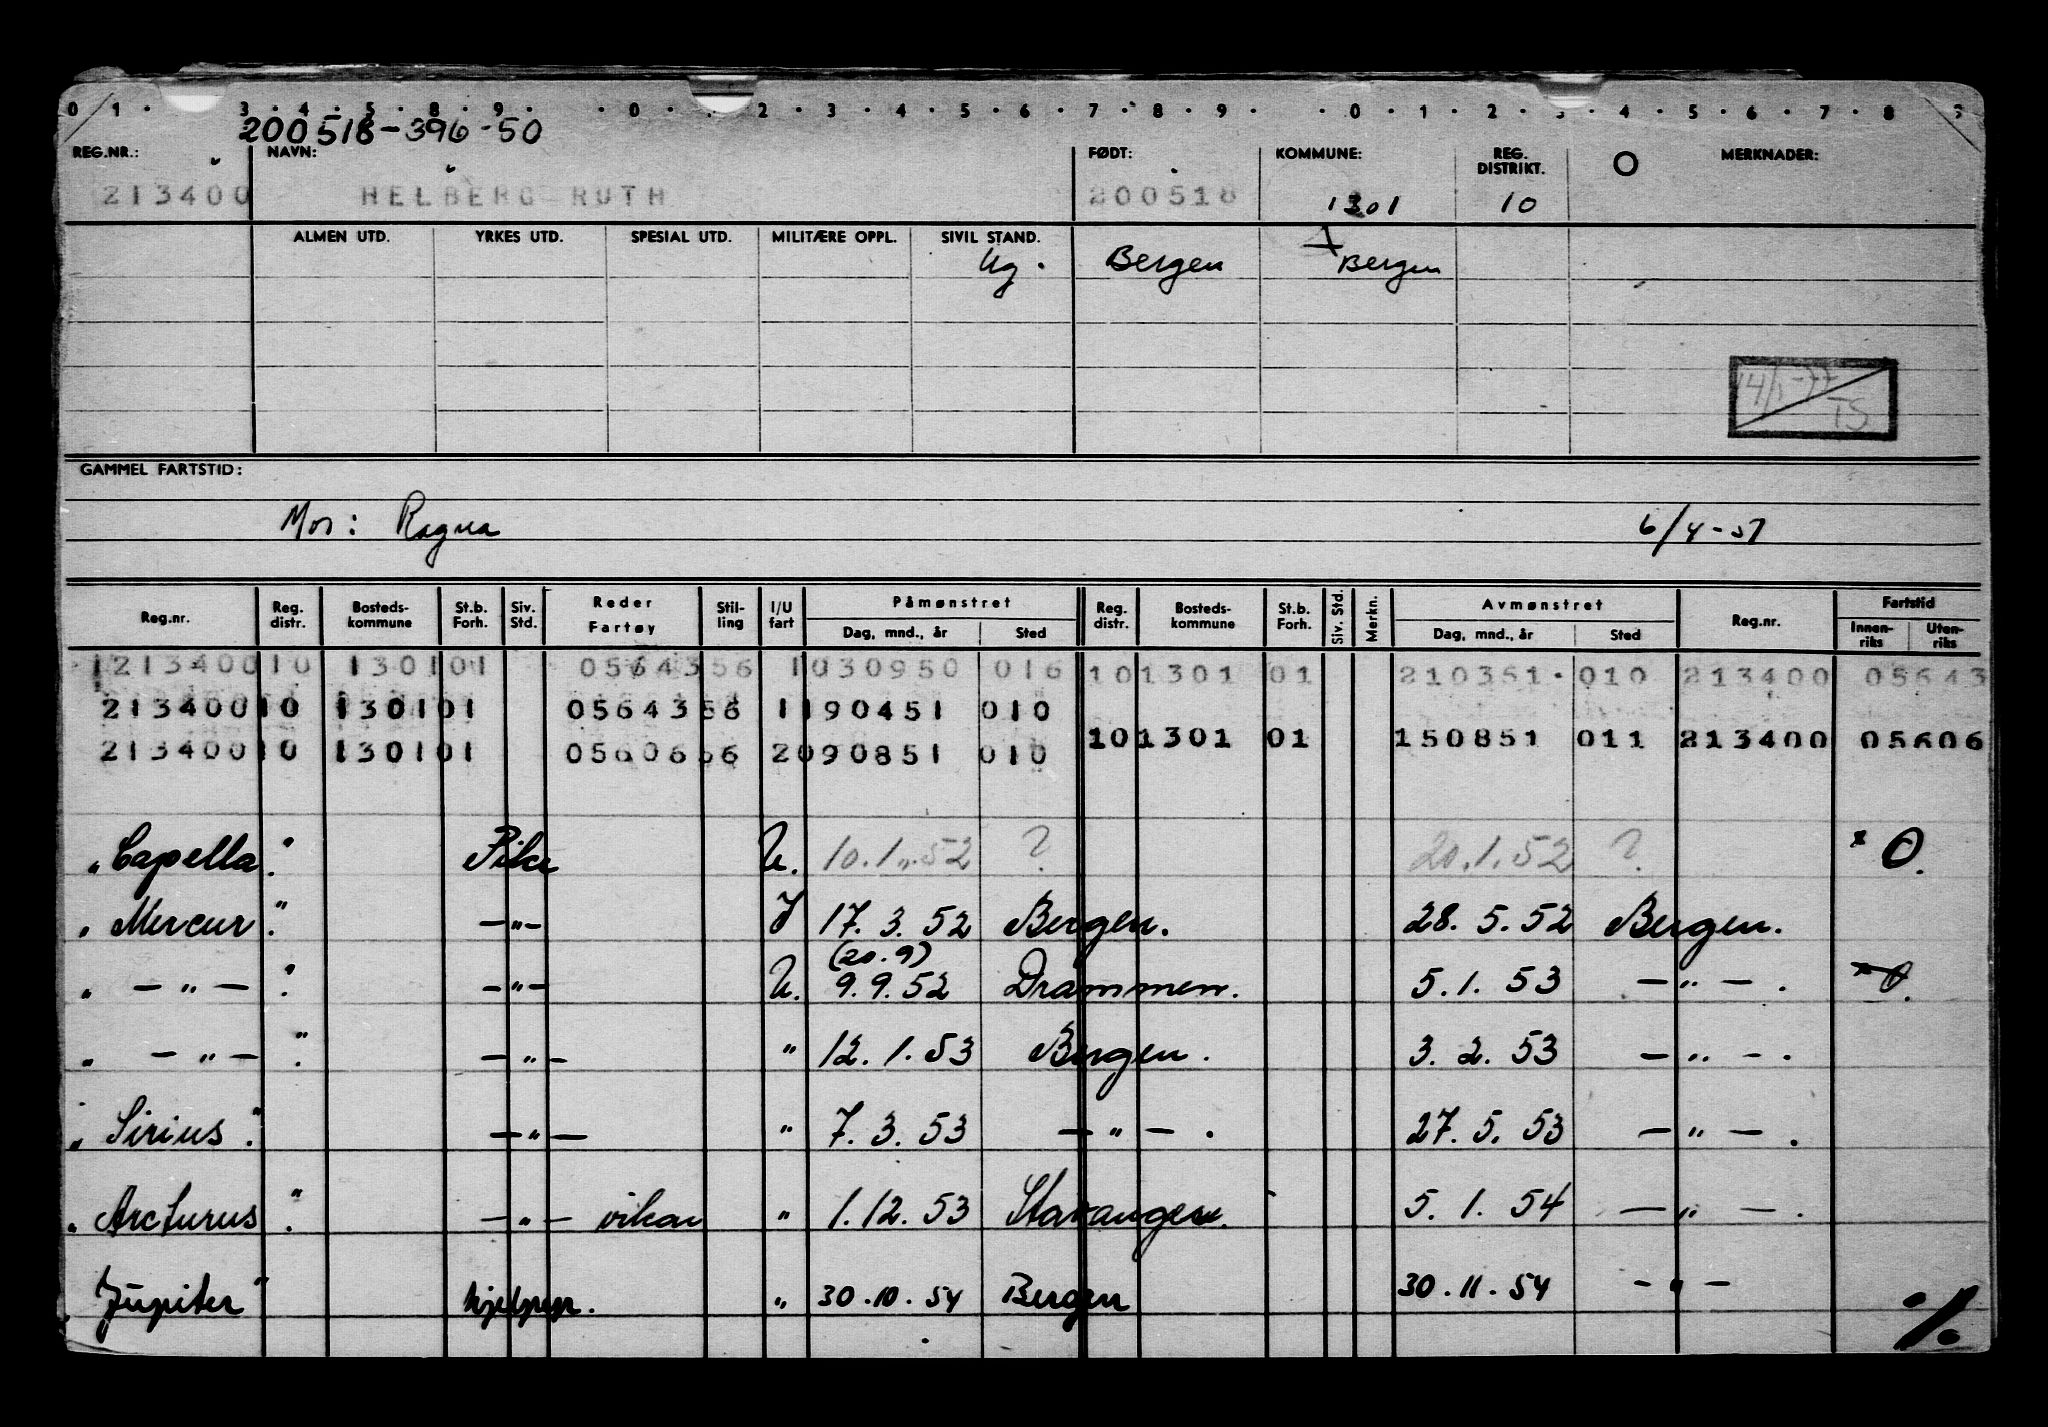 0 1 · 3 · 4 · 5 · 8 · 9 · · 0 · 2 · 3 · 4 · 5 · 6 · 7 · 8 · 9 · · 0 · 1 · 2 · 3 · 4 · 5 · 6 · 7 · 8
200518-396-50
REG.NR.: NAVN: FØDT: KOMMUNE: REG. DISTRIKT. MERKNADER:
213400 HELBERG RUTH 200518 1301 10
ALMEN UTD. YRKES UTD. SPESIAL UTD. MILITÆRE OPPL. SIVIL STAND.
Ug. Bergen Bergen
14/1-77
TS
GAMMEL FARTSTID:
Mor: Ragna 6/4-51
Reg.nr. Reg. distr. Bosteds-kommune St.b. Forh. Siv. Std. Reder Fartøy Stil-ling I/U fart Påmønstret Dag, mnd., år Sted Reg. distr. Bosteds-kommune St.b. Forh. Siv. Std. Merkn. Avmønstret Dag, mnd., år Sted Reg.nr. Fartstid Innen-riks Uten-riks
213400 10 1301 01 05643 56 1 030950 016 10 1301 01 210351 010 213400 05643
213400 10 1301 01 05643 56 1 190451 010
10 1301 01 150851 011 213400 05606
213400 10 1301 01 05606 56 2 090851 010
"Capella". Pike U. 10.1.52 ? 20.1.52 ? x O.
"Mercur". -"- I 17.3.52 Bergen. 28.5.52 Bergen.
(20.9)
" -"- ". -"- U. 9.9.52 Drammen. 5.1.53 -"-. x O.
" -"- ". -"- " 12.1.53 Bergen. 3.2.53 -"-.
"Sirius". -"- " 7.3.53 -"-. 27.5.53 -"-.
"Arcturus". -"- vikar " 1.12.53 Stavanger. 5.1.54 -"-.
"Jupiter" hjelpepr. " 30.10.54 Bergen 30.11.54 -"-
·/.